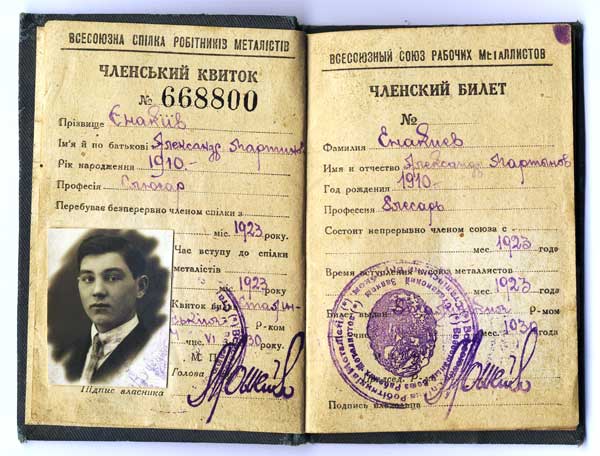 ВСЕСОЮЗНА СПІЛКА РОБІТНИКІВ МЕТАЛІСТІВ
ЧЛЕНСЬКИЙ КВИТОК
№ 668800
Прізвище Єнакіїв
Ім'я й по батькові Александр Мартинов
Рік народження 1910-
Професія Слюсар
Перебуває безперервно членом спілки з
міс. 1923 року.
Час вступу до спілки
металістів
1923 року
Квиток
Р-ком
чис. VI 1930 року.
М. П.
Голова
Підпис власника
ВСЕСОЮЗНЫЙ СОЮЗ РАБОЧИХ МЕТАЛЛИСТОВ
ЧЛЕНСКИЙ БИЛЕТ
№
Фамилия Енакиев
Имя и отчество Александр Мартынов
Год рождения 1910-
Профессия Слесарь
Состоит непрерывно членом союза с
мес. 1923 года
Время вступления в союз металлистов
мес. 1923 года
Билет выдан Р-мом
чис. мес. года
Подпись владельца